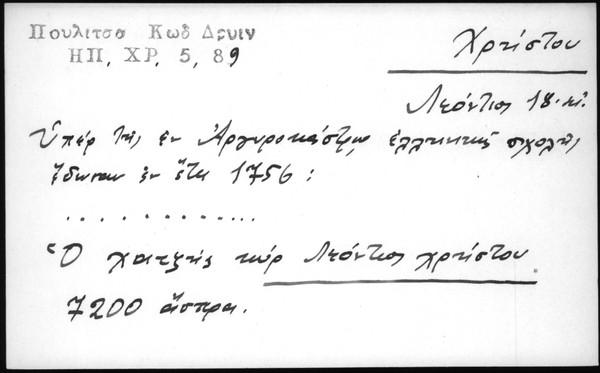 Πουλιτσα Κωδ Δρυιν
ΗΠ, ΧΡ, 5, 89
Χρήστου
Λεόντιος 18. αἰ.
Ὑπὲρ τῆς ἐν Ἀργυροκάστρῳ ἑλληνικῆς σχολῆς
ἔδωκαν ἐν ἔτει 1756 :
. . . . . . . . . . . .
Ὁ χατζῆς κὺρ Λεόντιος χρήστου
7200 ἄσπρα.